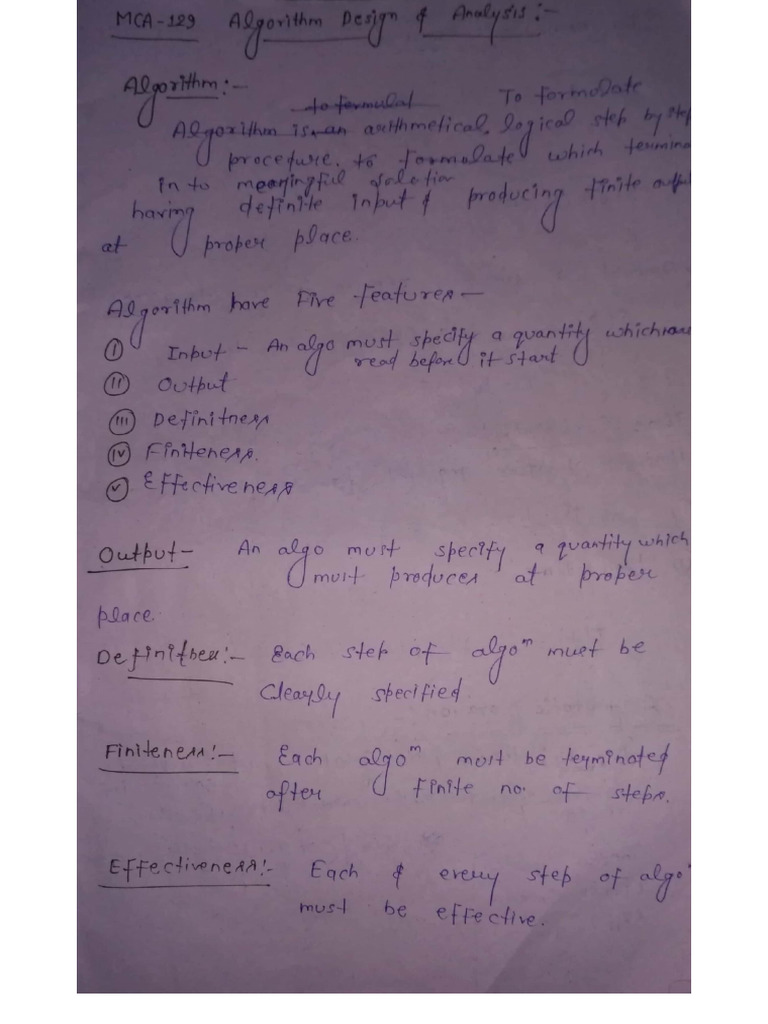 MCA-129 Algorithm Design & Analysis:-
Algorithm:-
to formulat To formolate
Algorithm is an arithmetical, logical step by step
procedure. to formolate which termina
in to meaningful solution
having definite input & producing finite outpu
at proper place.
Algorithm have Five features-
(I) Input - An algo must specify a quantity which
read before it start
(II) Output
(III) Definitness
(IV) Finiteness.
(V) Effectiveness
Output- An algo must specify a quantity which
must produces at proper
place.
Definitness:- Each step of algoⁿ must be
Clearly specified.
Finiteness:- Each algoᵐ must be terminated
after finite no. of steps.
Effectiveness:- Each & every step of algo
must be effective.